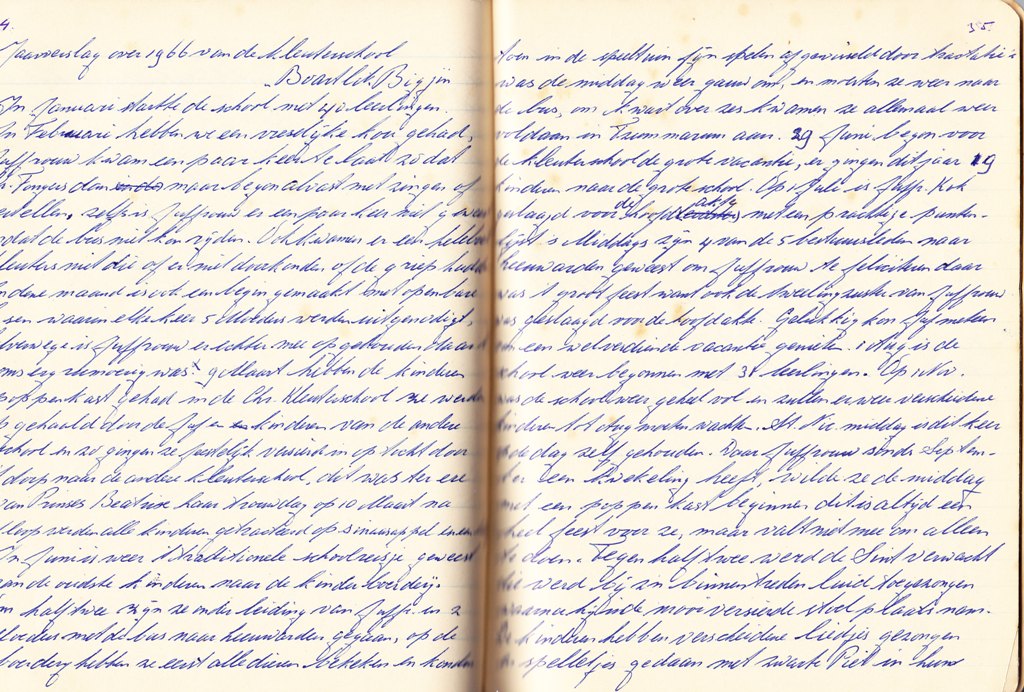 4.
Jaarverslag over 1966 van de Kleuterschool
Boartlik Bigjin
In Januari startte de school met 40 leerlingen.
In Februari hebben we een vreselijke kou gehad,
Juffrouw kwam een paar keer te laat zodat
dan maar begon alvast met zingen of
vertellen, zelfs is Juffrouw er een paar keer niet geweest
omdat de bus niet kon rijden. Ook kwamen er een
kleuters niet die of er niet door konden of de griep hadden
maand is ook een begin gemaakt met openbare
lessen waarin elke keer 5 Moeders werden uitgenodigd,
is Juffrouw er echter mee op gehouden daar 't
soms erg rumoerig was. 9 Maart hebben de kinderen
poppenkast gehad in de Chr. Kleuterschool ze werden
op gehaald door de Juf en kinderen van de andere
school en zo gingen ze feestelijk versierd in optocht door
't dorp naar de andere kleuterschool, dit was ter ere
van Prinses Beatrixe haar trouwdag op 10 Maart na
afloop werden alle kinderen getracteerd op sinaasappel en een
In Juni is weer 't traditionele schoolreisje geweest
van de oudste kinderen naar de kinderboerderij.
om half twee zijn ze onder leiding van Juffr. en 2
Moeders met de bus naar Leeuwarden gegaan, op de
boerderij hebben ze eerst alle dieren bekeken en konden
35
toen in de speeltuin fijn spelen afgewisseld door tractatie
was de middag weer gauw om, en moesten ze weer naar
de bus, om kwart over zes kwamen ze allemaal weer
voldaan in Tzummarum aan. 29 Juni begon voor
de kleuterschool de grote vacantie, er gingen dit jaar 19
kinderen naar de grote school. Op 1 Juli is Juffr. Kok
geslaagd voor de hoofdakte met een prachtige punten-
lijst 's Middags zijn 4 van de 5 bestuursleden naar
Leeuwarden geweest om Juffrouw te feliciteren daar
was 't groot feest want ook de tweelingzuster van Juffrouw
was geslaagd voor de hoofdakte. Gelukkig kon Juf meteen
van een welverdiende vacantie genieten. 1 Aug is de
school weer begonnen met 38 leerlingen. Op 1 Nov.
was de school weer geheel vol en zullen er weer verscheidene
kinderen tot Aug moeten wachten. St Nic. middag is dit keer
op de dag zelf gehouden. Daar Juffrouw sinds Septem-
ber een kwekeling heeft, wilde ze de middag
met een poppenkast beginnen dit is altijd een
heel feest voor ze, maar valt niet mee om alleen
te doen. Tegen half twee werd de Sint verwacht
die werd bij zn binnentreden luid toegezongen
waarna hij in de mooi versierde stoel plaats nam.
De kinderen hebben verscheidene liedjes gezongen
en spelletjes gedaan met zwarte Piet in hun